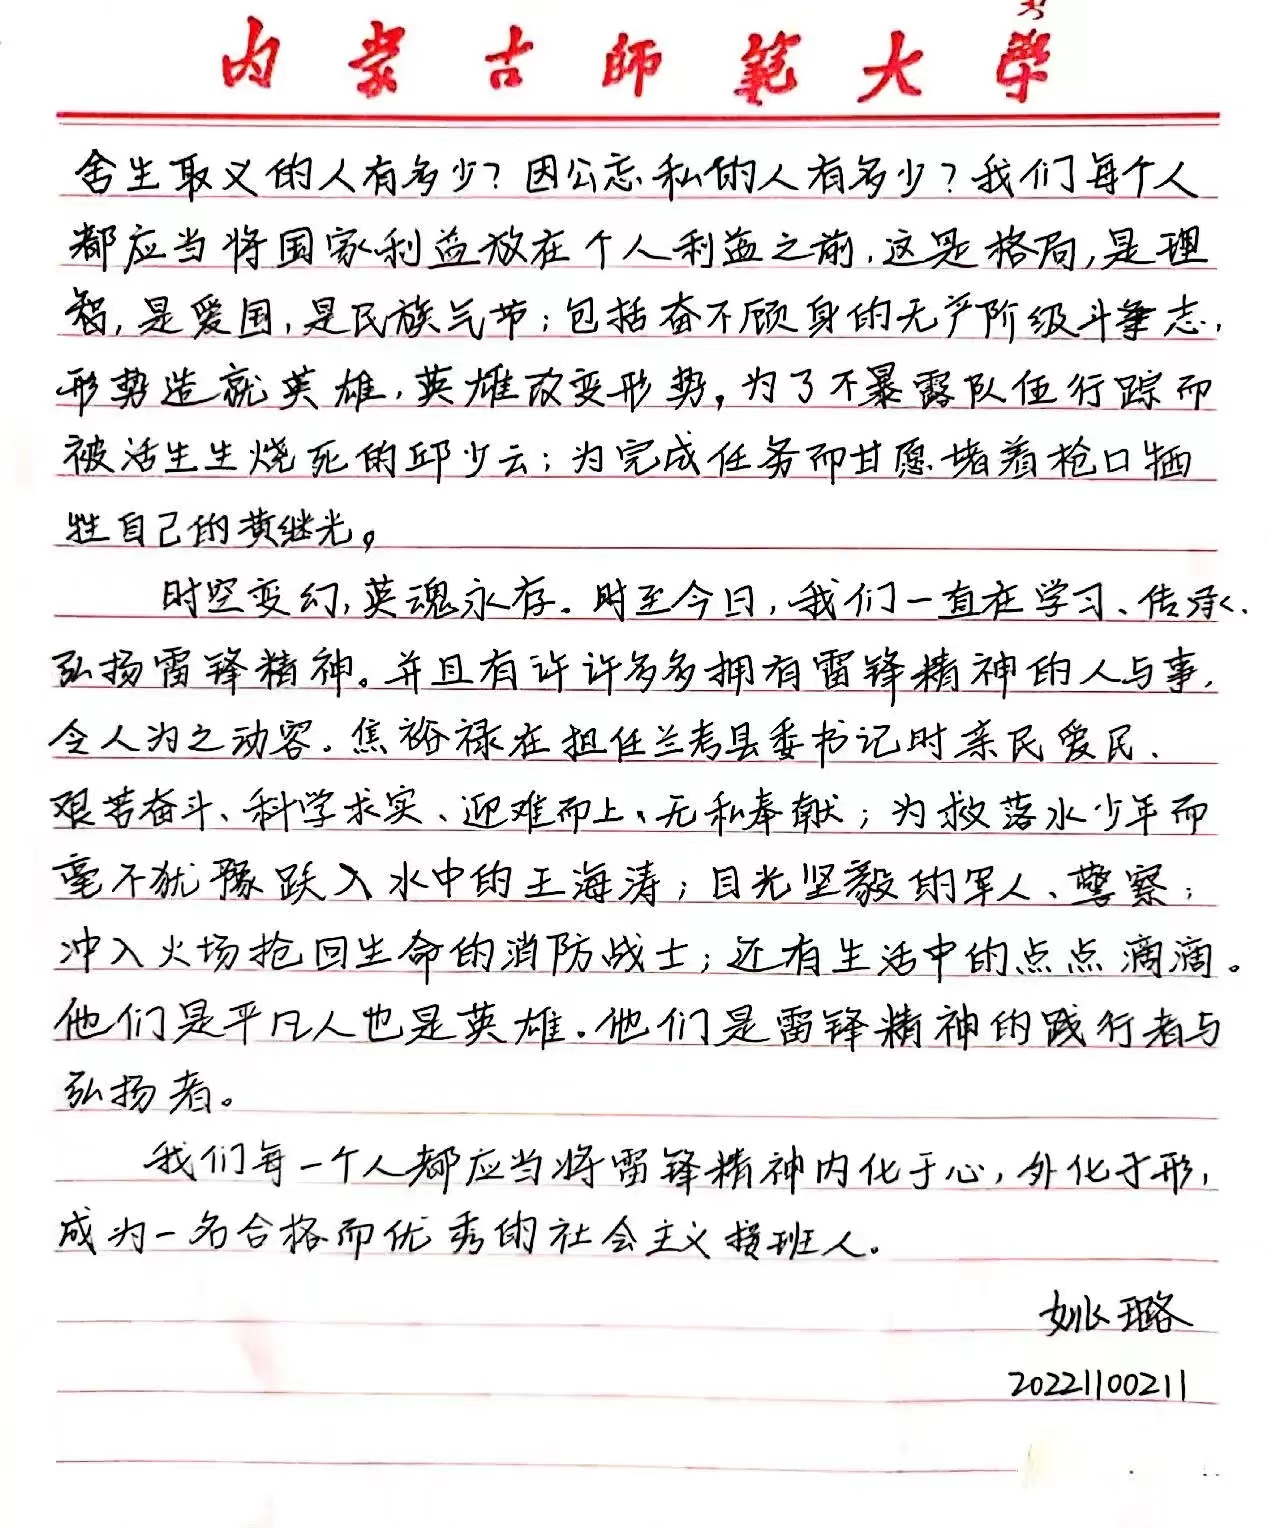 内蒙古師範大學
舍生取义的人有多少？因公忘私的人有多少？我们每个人
都应当将国家利益放在个人利益之前，这是格局，是理
智，是爱国，是民族气节；包括奋不顾身的无产阶级斗争志，
形势造就英雄，英雄改变形势。为了不暴露队伍行踪而
被活生生烧死的邱少云；为完成任务而甘愿堵着枪口牺
牲自己的黄继光。
时空变幻，英魂永存。时至今日，我们一直在学习、传承、
弘扬雷锋精神。并且有许许多多拥有雷锋精神的人与事，
令人为之动容。焦裕禄在担任兰考县委书记时亲民爱民、
艰苦奋斗、科学求实、迎难而上、无私奉献；为救落水少年而
毫不犹豫跃入水中的王海涛；目光坚毅的军人、警察；
冲入火场抢回生命的消防战士；还有生活中的点点滴滴。
他们是平凡人也是英雄。他们是雷锋精神的践行者与
弘扬者。
我们每一个人都应当将雷锋精神内化于心，外化于形，
成为一名合格而优秀的社会主义接班人。
姚璐
20221100211